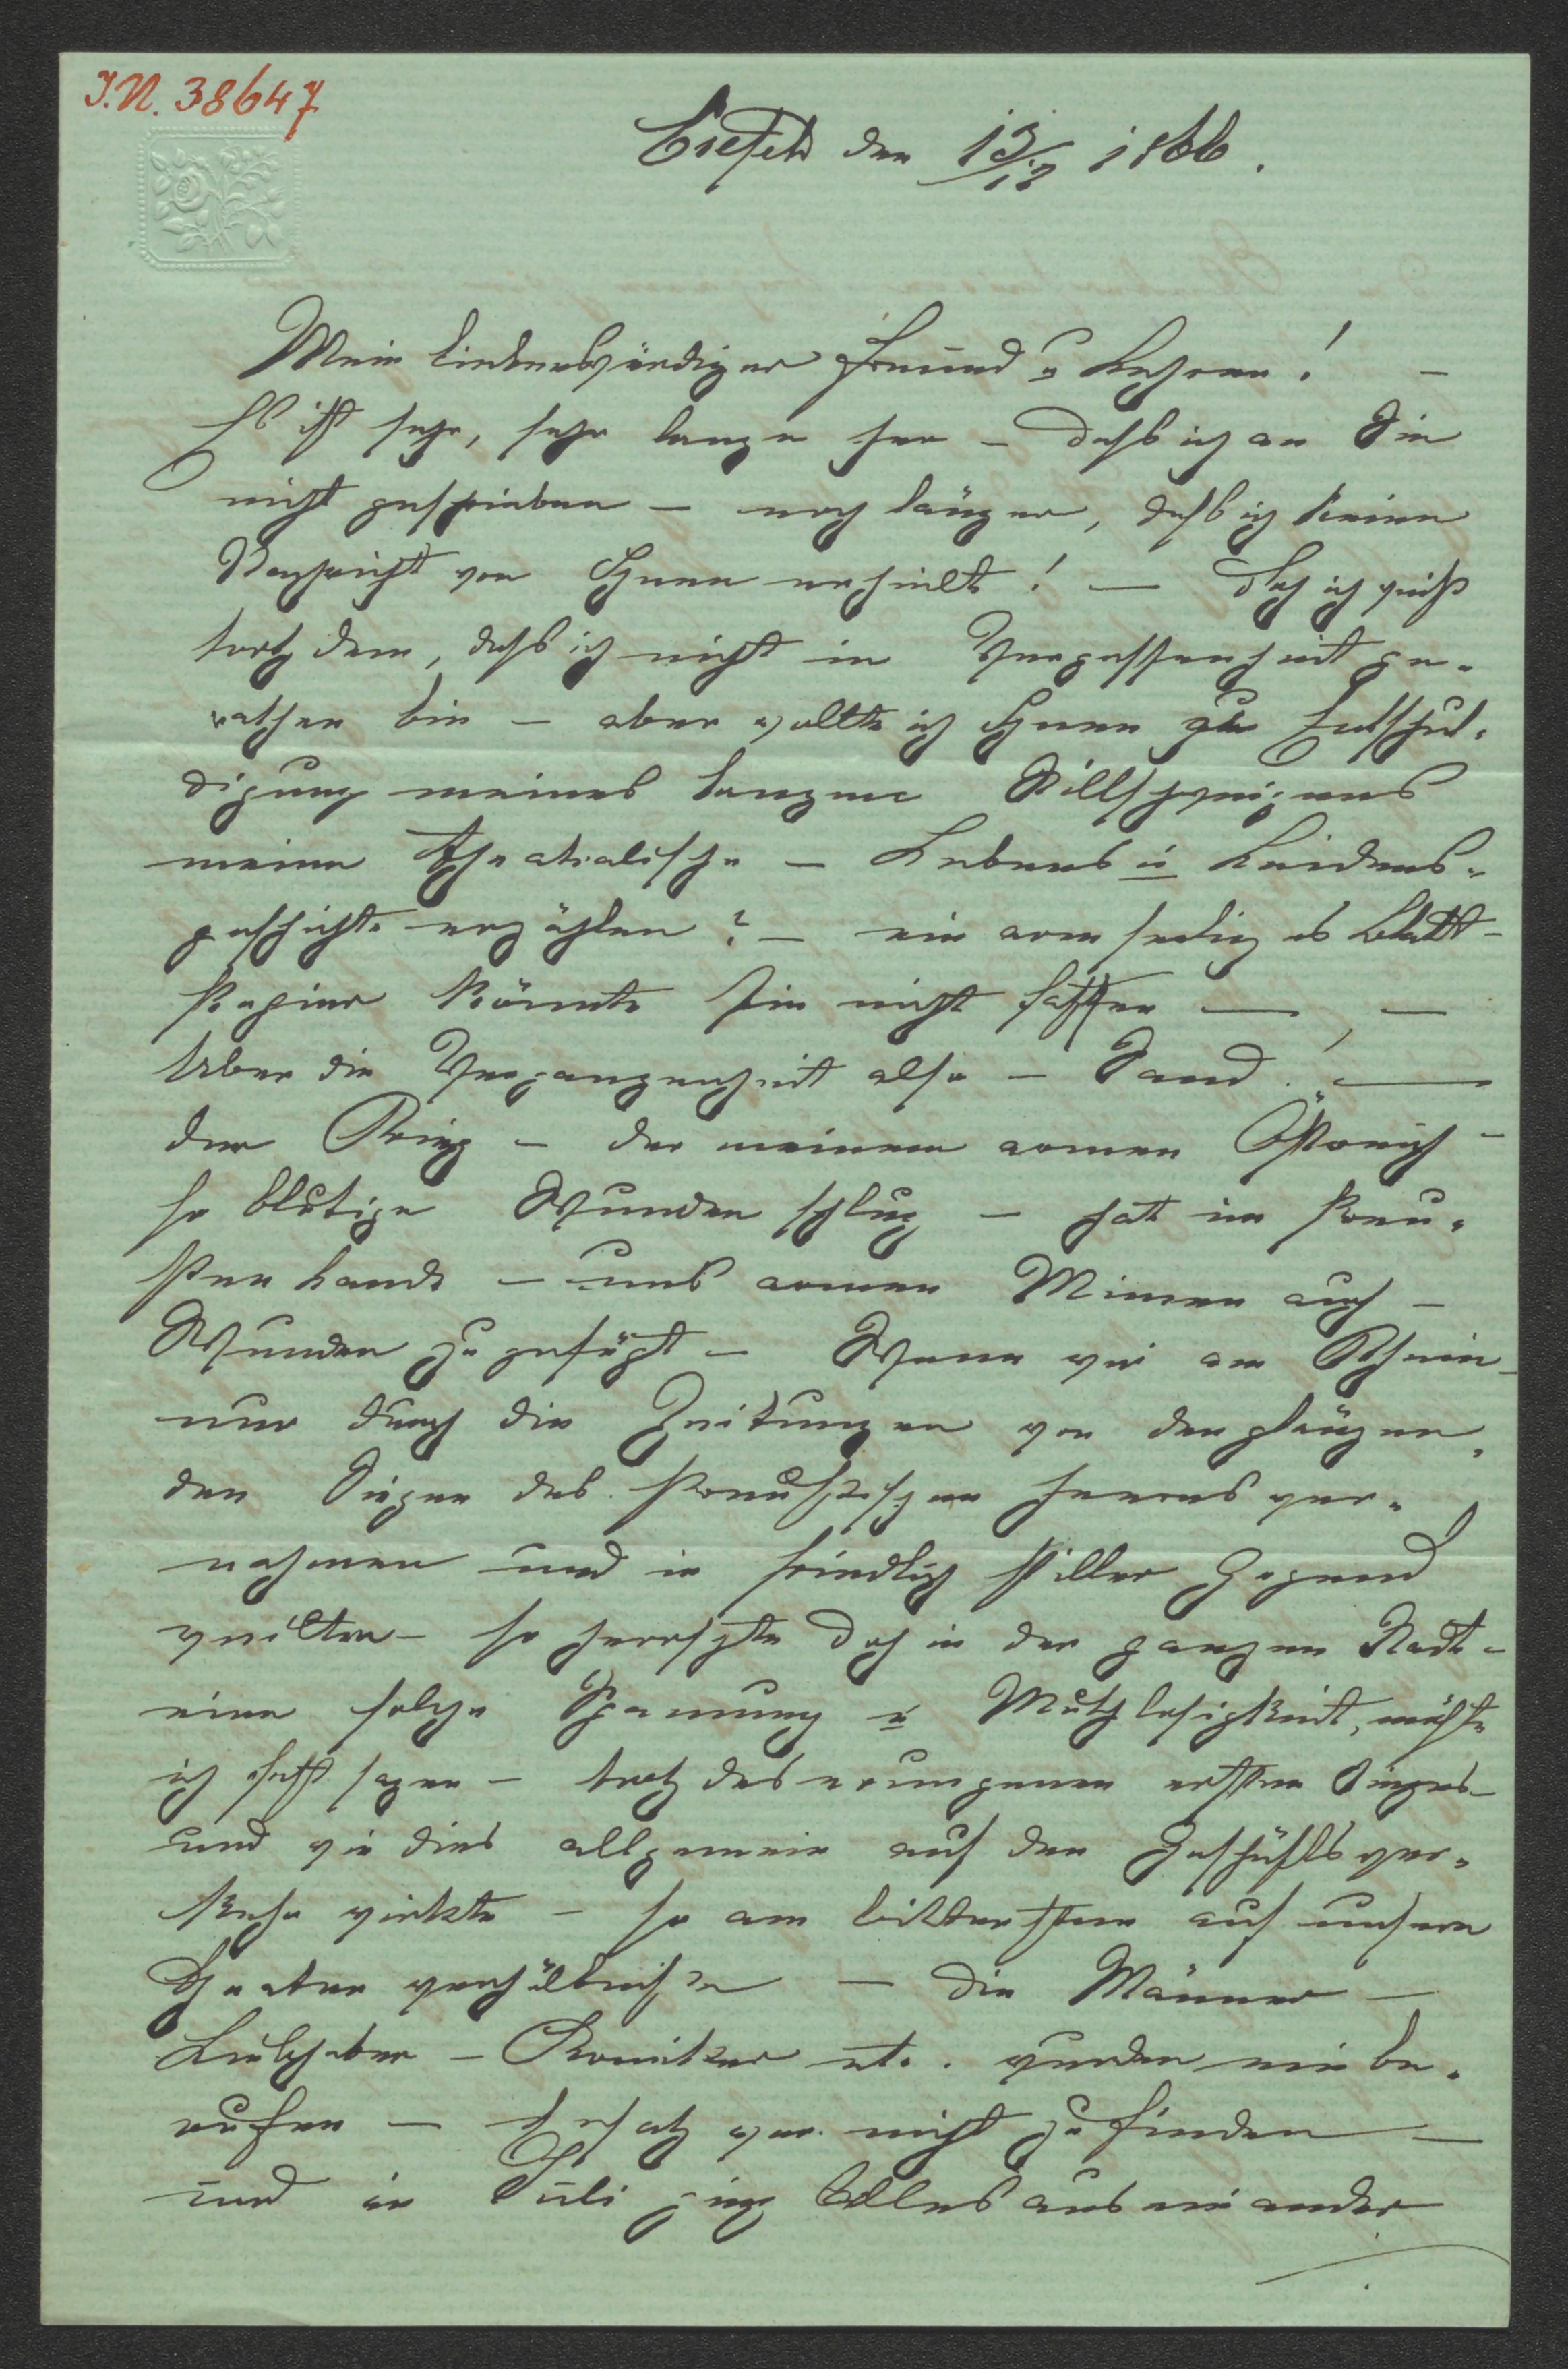 I.N. 38647
Crefeld den 13/12 1866.
Mein liebenswürdiger Freund u Lehrer! –
Es ist sehr, sehr lange her – daß ich an Sie
nicht geschrieben – noch länger, daß ich keine
Nachricht von Ihnen erhielt! – Doch ich weiß
trotz dem, daß ich nicht in Vergessenheit ge-
rathen bin – aber wollte ich Ihnen zu Entschul-
digung meines langen Stillschweigens
meine theatralische – Lebens u Leidens-
geschichte erzählen? – ein armseliges Blatt-
Papier könnte sie nicht fassen – –
Über die Vergangenheit also – Sand! –
der Krieg – der meinem armen Östreich –
so blutige Wunden schlug – hat im Preu-
ßen Lande – uns armen Mimen auch –
Wunden zugefügt – Wenn wir am Rhein –
nur durch die Zeitungen von den glänzen-
den Siegen des Preußischen Heeres ver-
nahmen und in friedlich stiller Gegend
weilten – so herrschte doch in der ganzen Stadt –
eine solche Spannung u Muthlosigkeit, möchte
ich fast sagen – trotz des errungenen ersten Sieges –
und wie dies allgemein auf den Geschäftsver-
kehr wirkte – so am bittersten auf unsere
Theaterverhältniße – die Männer –
Liebhaber – Komiker etc. wurden einbe-
rufen – Ersatz war nicht zu finden –
und im Juli ging Alles auseinander